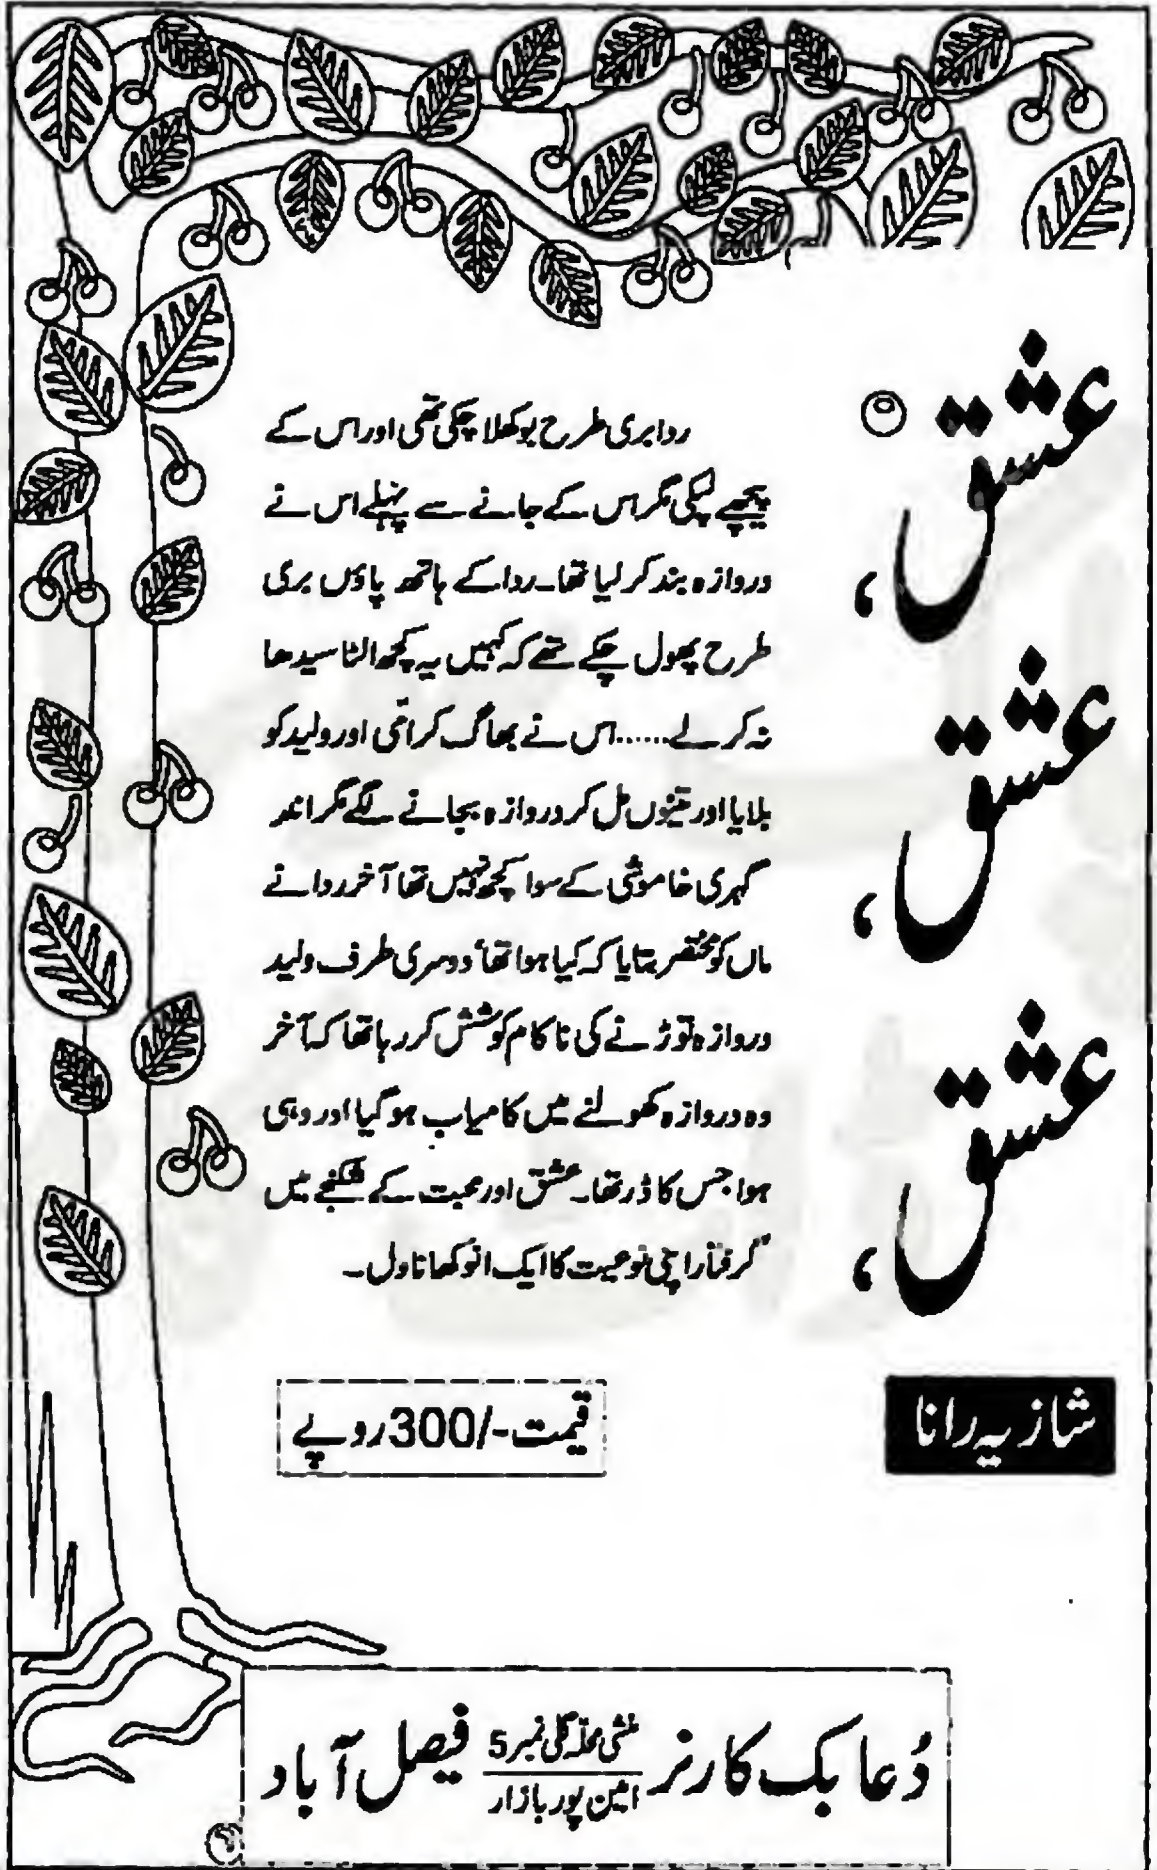 عشق،
عشق،
عشق،
ردا بری طرح بوکھلا چکی تھی اور اس کے
پیچھے لپکی مگر اس کے جانے سے پہلے اس نے
دروازہ بند کر لیا تھا۔ ردا کے ہاتھ پاؤں بری
طرح پھول چکے تھے کہ کہیں یہ کچھ الٹا سیدھا
نہ کر لے......اس نے بھاگ کر امّی اور ولید کو
بلایا اور تینوں مل کر دروازہ بجانے لگے مگر اندر
گہری خاموشی کے سوا کچھ نہیں تھا آخر ردا نے
ماں کو مختصر بتایا کہ کیا ہوا تھا، دوسری طرف ولید
دروازہ توڑنے کی ناکام کوشش کر رہا تھا کہ آخر
وہ دروازہ کھولنے میں کامیاب ہو گیا اور وہی
ہوا جس کا ڈر تھا۔ عشق اور محبت کے شکنجے میں
گرفتار اپنی نوعیت کا ایک انوکھا ناول۔
شازیہ رانا
قیمت -/300 روپے
دُعا بک کارنر منشی محلہ گلی نمبر 5 امین پور بازار فیصل آباد